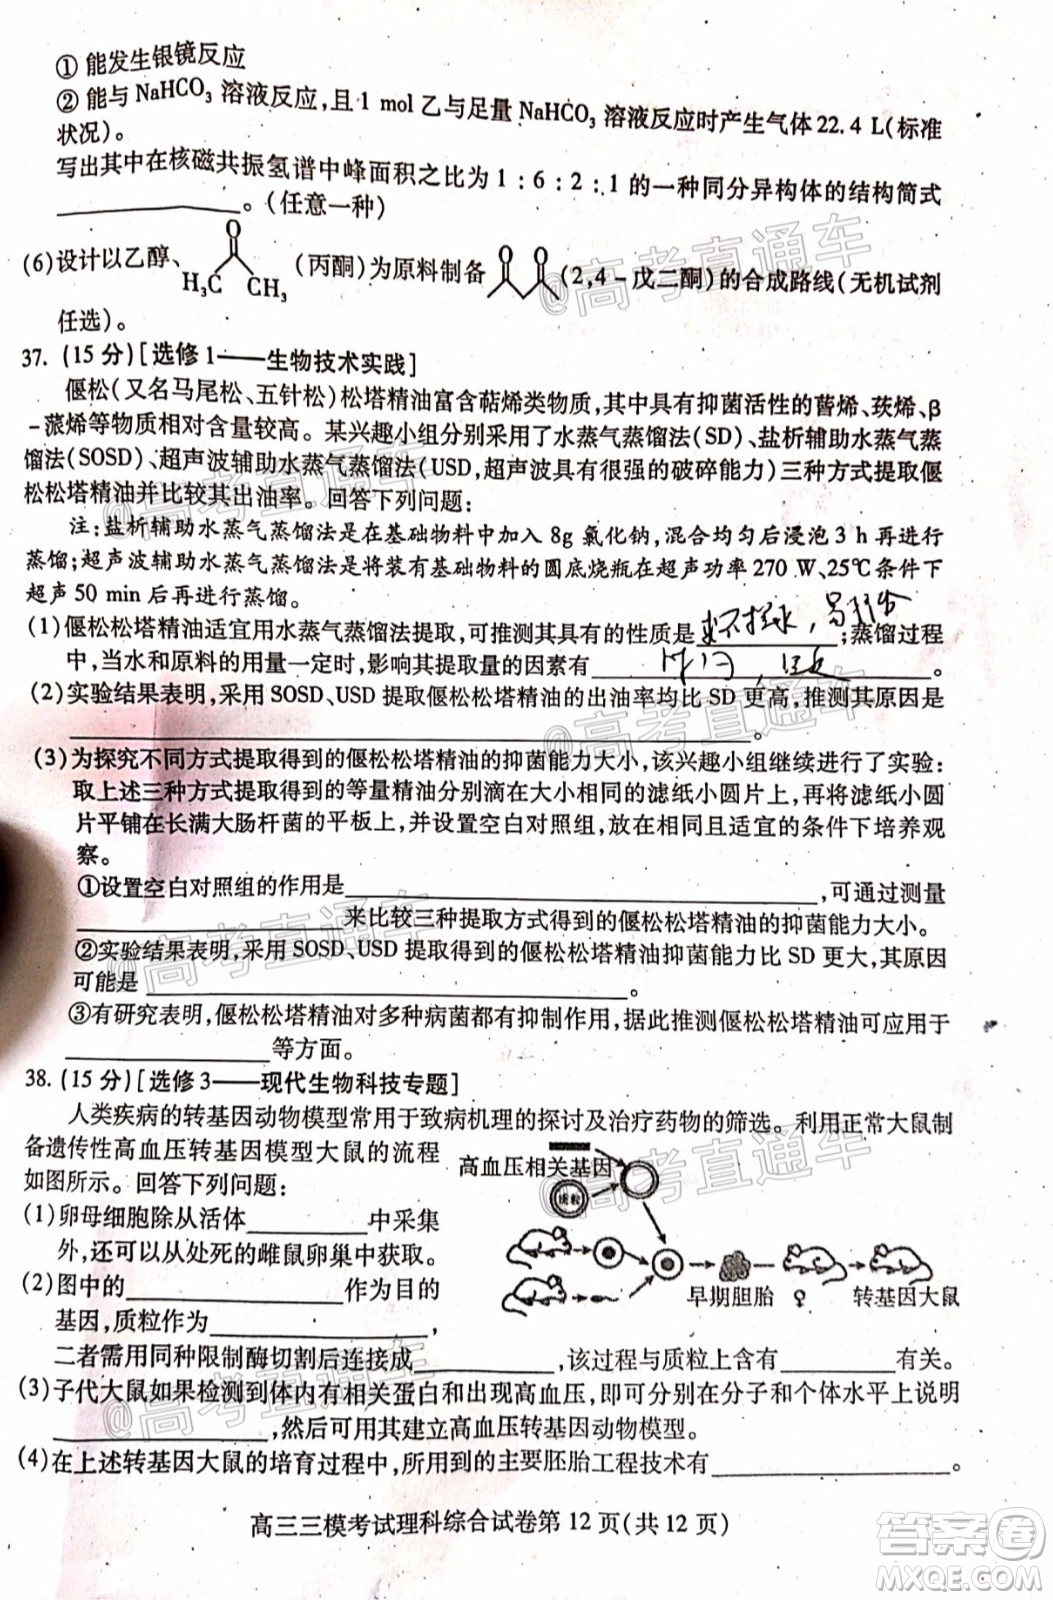 ① 能发生银镜反应
② 能与 NaHCO3 溶液反应,且 1 mol 乙与足量 NaHCO3 溶液反应时产生气体 22.4 L(标准
状况)。
写出其中在核磁共振氢谱中峰面积之比为 1:6:2:1 的一种同分异构体的结构简式
____________。(任意一种)
(6)设计以乙醇、 O H3C CH3 (丙酮)为原料制备 O O (2,4-戊二酮)的合成路线(无机试剂
任选)。
37. (15 分)[选修 1——生物技术实践]
偃松(又名马尾松、五针松)松塔精油富含萜烯类物质,其中具有抑菌活性的蒈烯、莰烯、β
-蒎烯等物质相对含量较高。某兴趣小组分别采用了水蒸气蒸馏法(SD)、盐析辅助水蒸气蒸
馏法(SOSD)、超声波辅助水蒸气蒸馏法(USD,超声波具有很强的破碎能力)三种方式提取偃
松松塔精油并比较其出油率。回答下列问题:
注:盐析辅助水蒸气蒸馏法是在基础物料中加入 8g 氯化钠,混合均匀后浸泡 3 h 再进行
蒸馏;超声波辅助水蒸气蒸馏法是将装有基础物料的圆底烧瓶在超声功率 270 W、25℃条件下
超声 50 min 后再进行蒸馏。
(1)偃松松塔精油适宜用水蒸气蒸馏法提取,可推测其具有的性质是____________;蒸馏过程
中,当水和原料的用量一定时,影响其提取量的因素有 时间、温度 。
(2)实验结果表明,采用 SOSD、USD 提取偃松松塔精油的出油率均比 SD 更高,推测其原因是
____________。
(3)为探究不同方式提取得到的偃松松塔精油的抑菌能力大小,该兴趣小组继续进行了实验:
取上述三种方式提取得到的等量精油分别滴在大小相同的滤纸小圆片上,再将滤纸小圆
片平铺在长满大肠杆菌的平板上,并设置空白对照组,放在相同且适宜的条件下培养观
察。
①设置空白对照组的作用是____________,可通过测量
____________来比较三种提取方式得到的偃松松塔精油的抑菌能力大小。
②实验结果表明,采用 SOSD、USD 提取得到的偃松松塔精油抑菌能力比 SD 更大,其原因
可能是____________。
③有研究表明,偃松松塔精油对多种病菌都有抑制作用,据此推测偃松松塔精油可应用于
____________等方面。
38. (15 分)[选修 3——现代生物科技专题]
人类疾病的转基因动物模型常用于致病机理的探讨及治疗药物的筛选。利用正常大鼠制
备遗传性高血压转基因模型大鼠的流程
如图所示。回答下列问题:
高血压相关基因
质粒
早期胚胎 ♀ 转基因大鼠
(1)卵母细胞除从活体____________中采集
外,还可以从处死的雌鼠卵巢中获取。
(2)图中的____________作为目的
基因,质粒作为____________,
二者需用同种限制酶切割后连接成____________,该过程与质粒上含有____________有关。
(3)子代大鼠如果检测到体内有相关蛋白和出现高血压,即可分别在分子和个体水平上说明
____________,然后可用其建立高血压转基因动物模型。
(4)在上述转基因大鼠的培育过程中,所用到的主要胚胎工程技术有____________。
高三三模考试理科综合试卷第 12 页(共 12 页)
@高考直通车
@高考直通车
@高考直通车
@高考直通车
@高考直通车
@高考直通车
答案圈
MXQE.COM